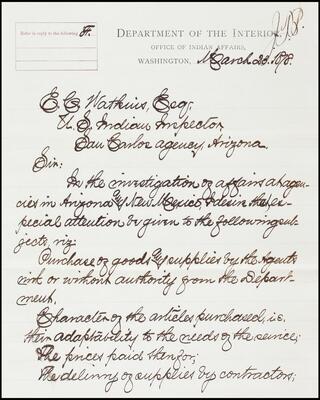 Refer in reply to the following: F.
DEPARTMENT OF THE INTERIOR,
OFFICE OF INDIAN AFFAIRS,
WASHINGTON, March 23. 1878.
E. C. Watkins, Esq;
U. S. Indian Inspector
San Carlos agency, Arizona.
Sir:
In the investigation of affairs at agen-
cies in Arizona & New Mexico I desire that es-
pecial attention be given to the following sub-
jects, viz;
Purchase of goods & supplies by the Agents
risk or without authority from the Depart-
ment,
Character of the articles purchased, i.e.
their adaptability to the needs of the service;
The prices paid therefor;
The delivery of supplies by contractors;